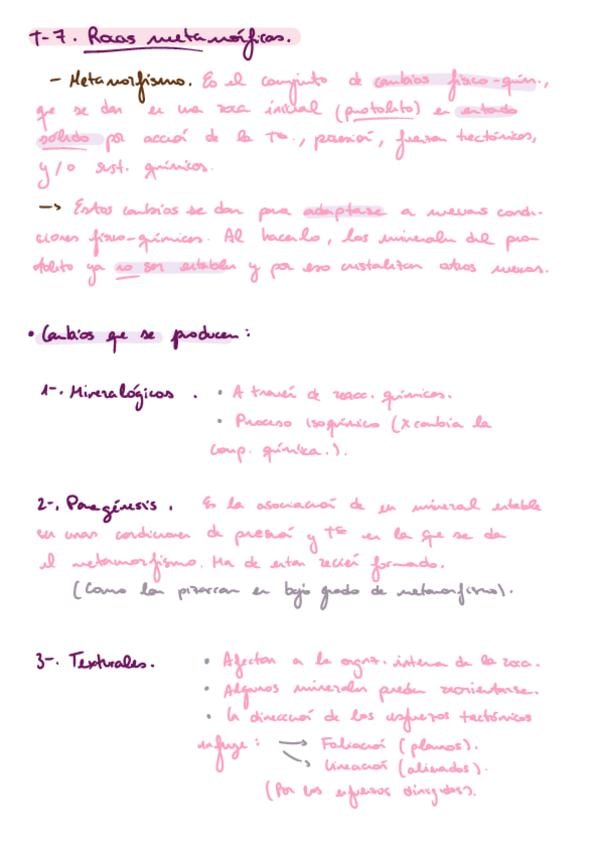 T-7. Rocas metamórficas.
- Metamorfismo. Es el conjunto de cambios físco-quím.,
que se dan en una roca inicial (protolito) en estado
sólido por acción de la Tª., presión, fuerzas tectónicas,
y/o sust. químicas.
-> Estos cambios se dan para adaptarse a nuevas condi-
ciones físico-químicas. Al hacerlo, los minerales del pro-
tolito ya no son estables y por eso cristalizan otros nuevos.
• Cambios que se producen:
1-. Mineralógicos.
• A través de reacc. químicas.
• Proceso isoquímico (x cambia la
comp. química.).
2-. Paragénesis. Es la asociación de un mineral estable
en unas condiciones de presión y Tª en la que se da
el metamorfismo. Ha de estar recién formado.
(Como las pizarras en bajo grado de metamorfismo).
3-. Texturales.
• Afectan a la orgnz. interna de la roca.
• Algunos minerales pueden reorientarse.
• La dirección de los esfuerzos tectónicos
influye: → Foliación (planos).
→ Lineación (alineados).
(Por los esfuerzos dirigidos).